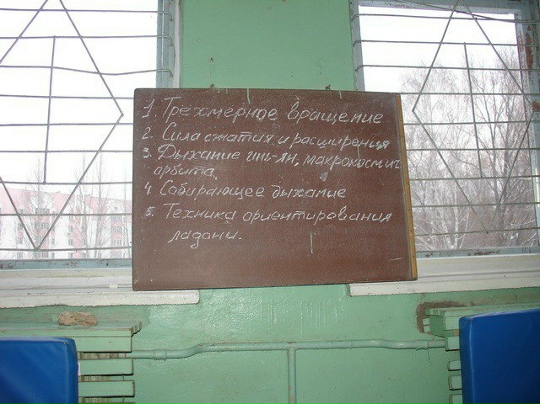 1. Трёхмерное вращение
2. Сила сжатия и расширения
3. Дыхание инь-ян, макрокосмич
арбита
4 Собирающее дыхание
5. Техника ориентирования
ладони.